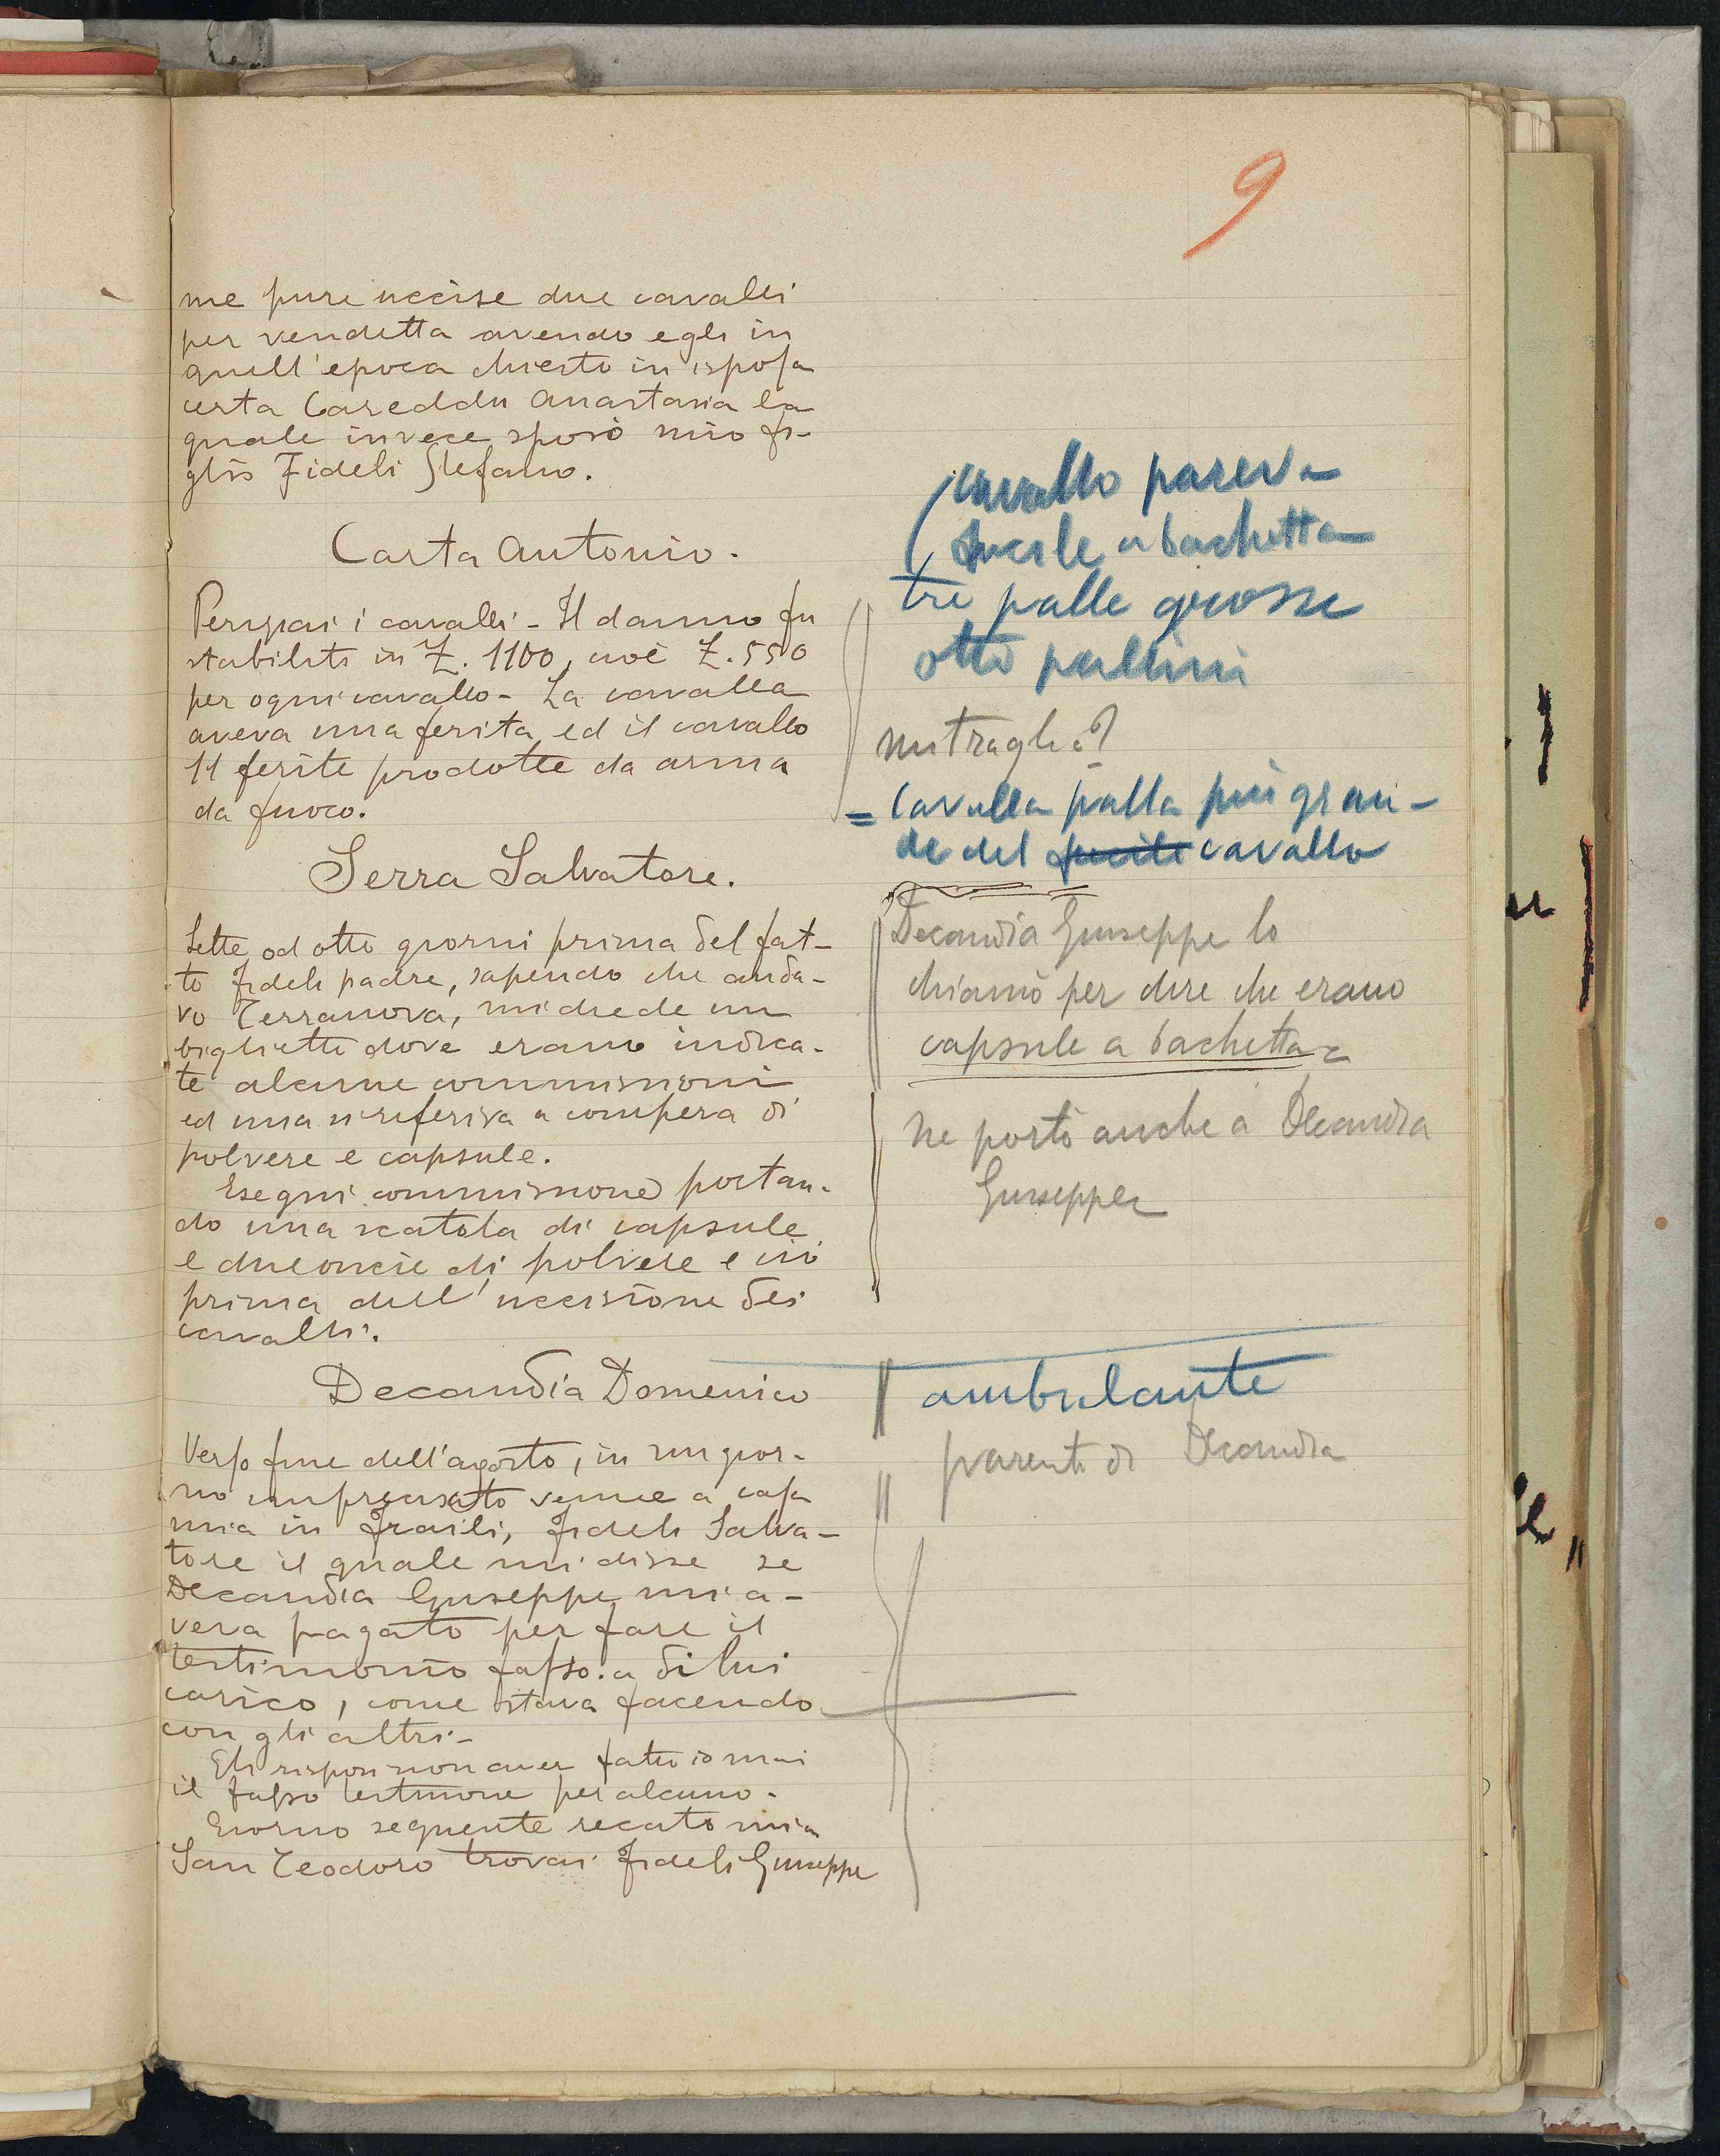 9
me pure uccise due cavalli
per vendetta avendo egli in
quell'epoca chiesto in isposa
certa Careddu Anastasia la
quale invece sposò mio fi-
glio Fideli Stefano.
Carta Antonio.
Periziai i cavalli - Il danno fu
stabilito in £. 1100, cioè £. 550
per ogni cavallo - La cavalla
aveva una ferita, ed il cavallo
11 ferite prodotte da arma
da fuoco.
Serra Salvatore.
Sette od otto giorni prima del fat-
to Fideli padre, sapendo che anda-
vo Terranova, mi diede un
biglietto dove erano indica-
te alcune commissioni
ed una si riferiva a compera di
polvere e capsule.
Eseguii commissione portan-
do una scatola di capsule
e due oncie di polvere e ciò
prima dell'uccisione dei
cavalli.
Decandia Domenico
Verso fine dell'agosto, in un gior-
no imprecisato venne a casa
mia in Fraili, Fideli Salva-
tore il quale mi disse se
Decandia Giuseppe mi a-
veva pagato per fare il
testimonio falso a di lui
carico, come stava facendo
con gli altri -
Gli risposi non aver fatto io mai
il falso testimone per alcuno -
Giorno seguente recatomi a
San Teodoro trovai Fideli Giuseppe
cavallo pareva
fucile a bachetta
tre palle grosse
otto pallini
mitraglia?
= Cavalla palla più gran-
de del fucile cavallo
Decandia Giuseppe lo
chiamò per dire che erano
capsule a bachetta
ne portò anche a Decandia
Giuseppe
ambulante
parente di Decandia